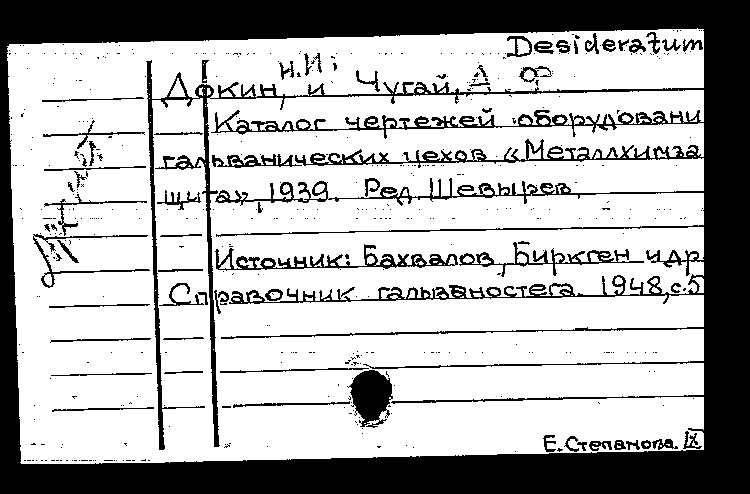 Desideratum
Докин, Н.И; и Чугай, А. Ф
Каталог чертежей оборудовани
гальванических цехов «Металлхимза
щита», 1939. Ред. Шевырев.
Источник: Бахвалов, Биркген и др
Справочник гальваностега. 1948, с.5
Е. Степанова. IX